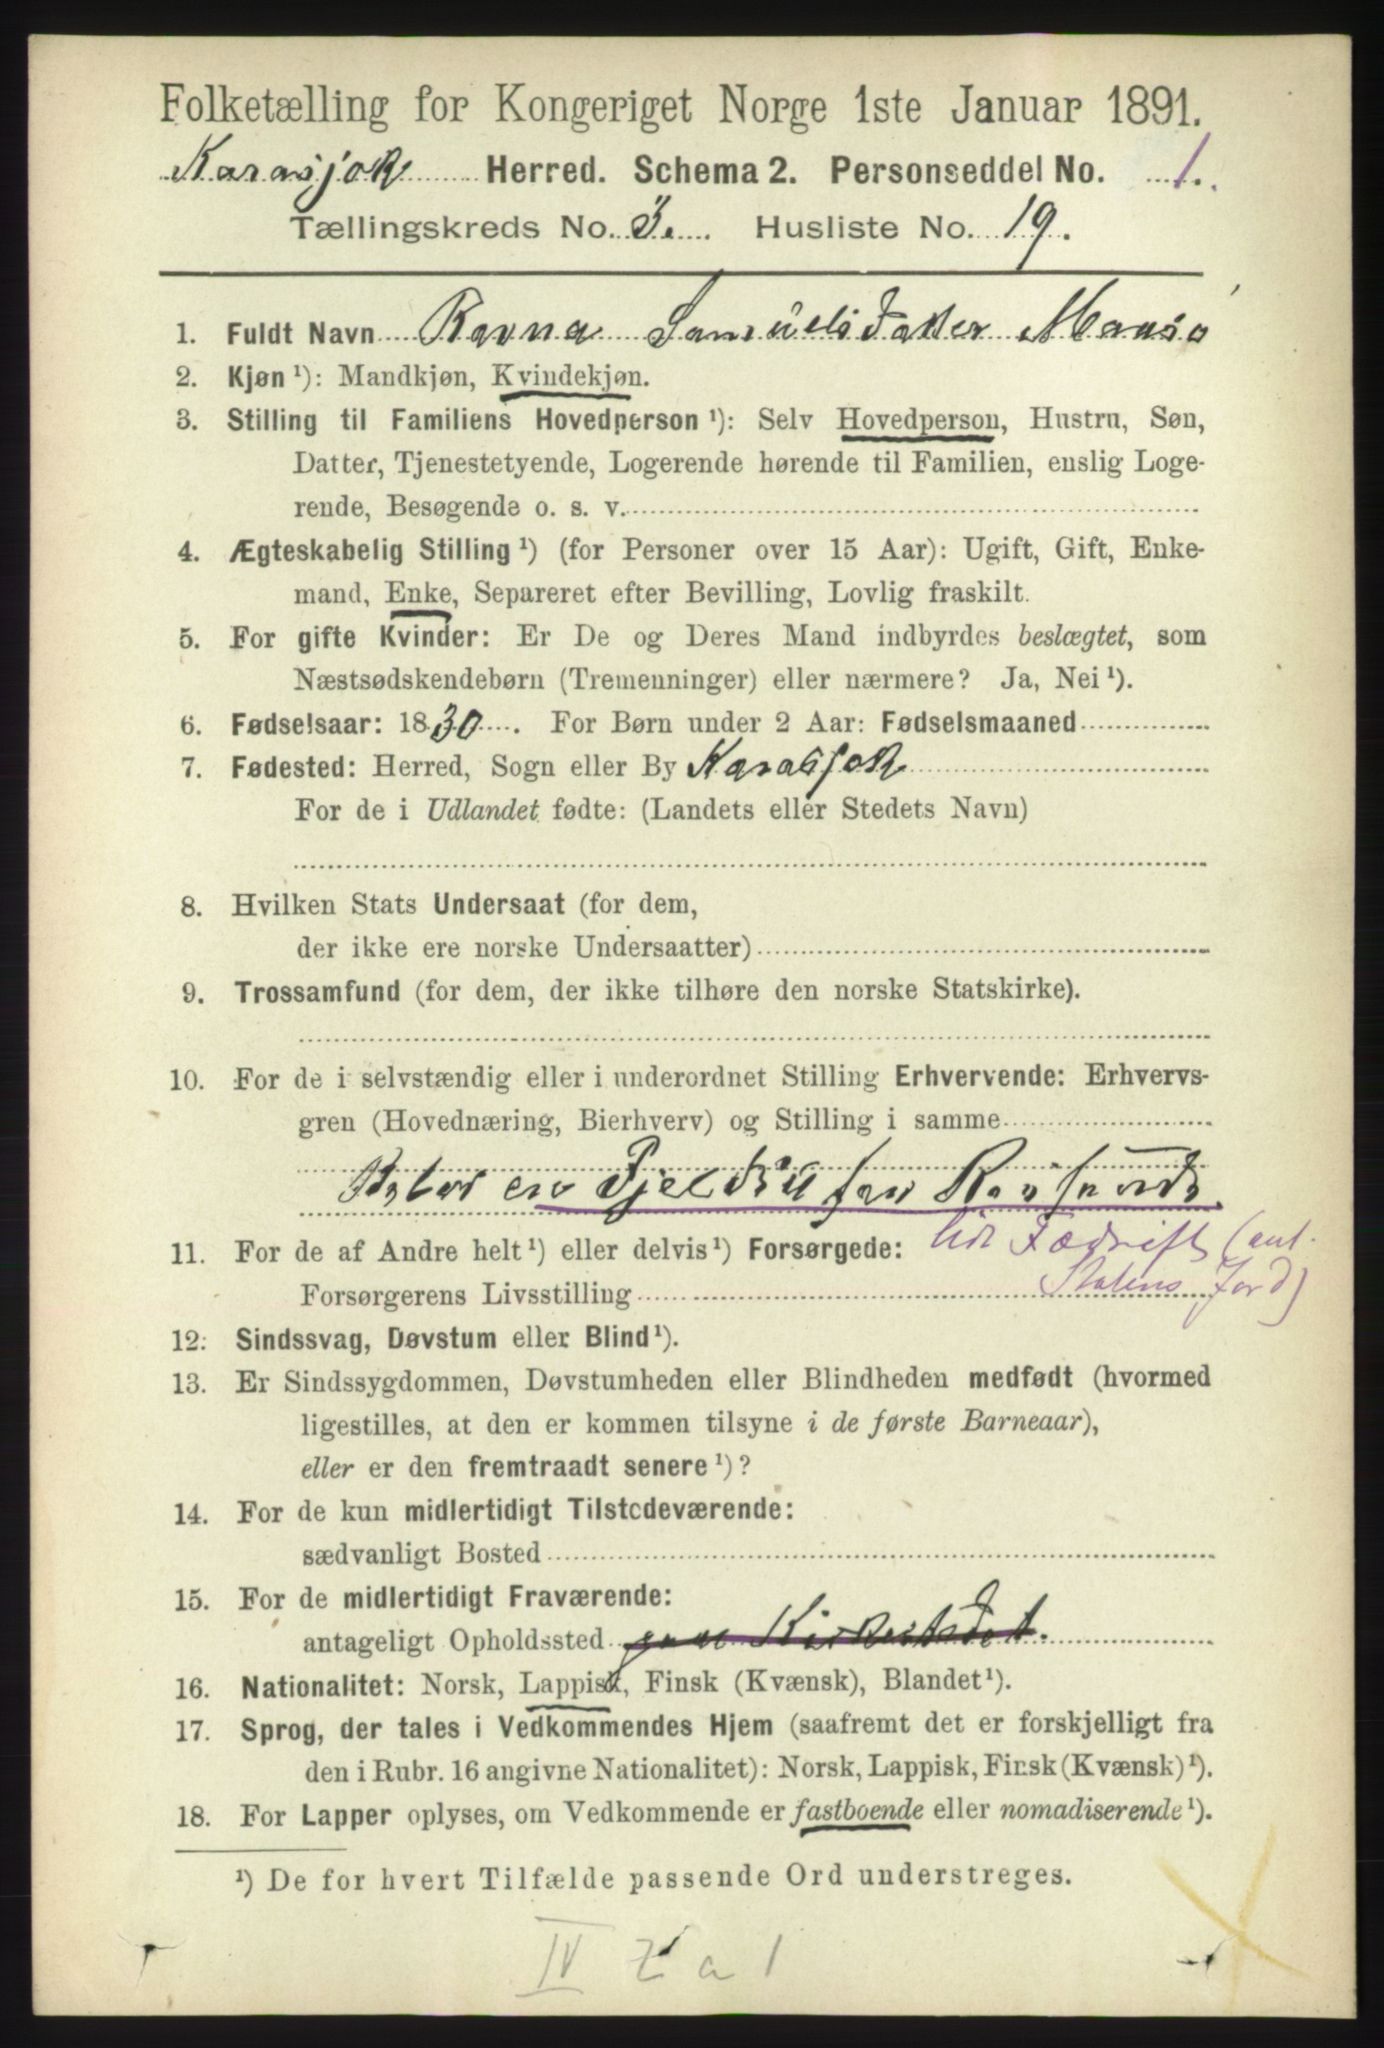 Folketælling for Kongeriget Norge 1ste Januar 1891.
Karasjok Herred. Schema 2. Personseddel No. 1.
Tællingskreds No. 3. Husliste No. 19.
1. Fuldt Navn Ravna Samuelsdatter Mansø
2. Kjøn ¹): Mandkjøn, Kvindekjøn.
3. Stilling til Familiens Hovedperson ¹): Selv Hovedperson, Hustru, Søn,
Datter, Tjenestetyende, Logerende hørende til Familien, enslig Loge-
rende, Besøgende o. s. v.
4. Ægteskabelig Stilling ¹) (for Personer over 15 Aar): Ugift, Gift, Enke-
mand, Enke, Separeret efter Bevilling, Lovlig fraskilt.
5. For gifte Kvinder: Er De og Deres Mand indbyrdes beslægtet, som
Næstsødskendebørn (Tremenninger) eller nærmere? Ja, Nei ¹).
6. Fødselsaar: 1830. For Børn under 2 Aar: Fødselsmaaned
7. Fødested: Herred, Sogn eller By Karasjok
For de i Udlandet fødte: (Landets eller Stedets Navn)
8. Hvilken Stats Undersaat (for dem,
der ikke ere norske Undersaatter)
9. Trossamfund (for dem, der ikke tilhøre den norske Statskirke).
10. For de i selvstændig eller i underordnet Stilling Erhvervende: Erhvervs-
gren (Hovednæring, Bierhverv) og Stilling i samme
en Fjeld
11. For de af Andre helt ¹) eller delvis ¹) Forsørgede: lidt Fædrift (ant.
Forsørgerens Livsstilling Statens Jord)
12. Sindssvag, Døvstum eller Blind ¹).
13. Er Sindssygdommen, Døvstumheden eller Blindheden medfødt (hvormed
ligestilles, at den er kommen tilsyne i de første Barneaar),
eller er den fremtraadt senere ¹)?
14. For de kun midlertidigt Tilstedeværende:
sædvanligt Bosted
15. For de midlertidigt Fraværende:
antageligt Opholdssted paa Kirkestedet.
16. Nationalitet: Norsk, Lappisk, Finsk (Kvænsk), Blandet ¹).
17. Sprog, der tales i Vedkommendes Hjem (saafremt det er forskjelligt fra
den i Rubr. 16 angivne Nationalitet): Norsk, Lappisk, Finsk (Kvænsk) ¹).
18. For Lapper oplyses, om Vedkommende er fastboende eller nomadiserende ¹).
¹) De for hvert Tilfælde passende Ord understreges.
IV Z a 1